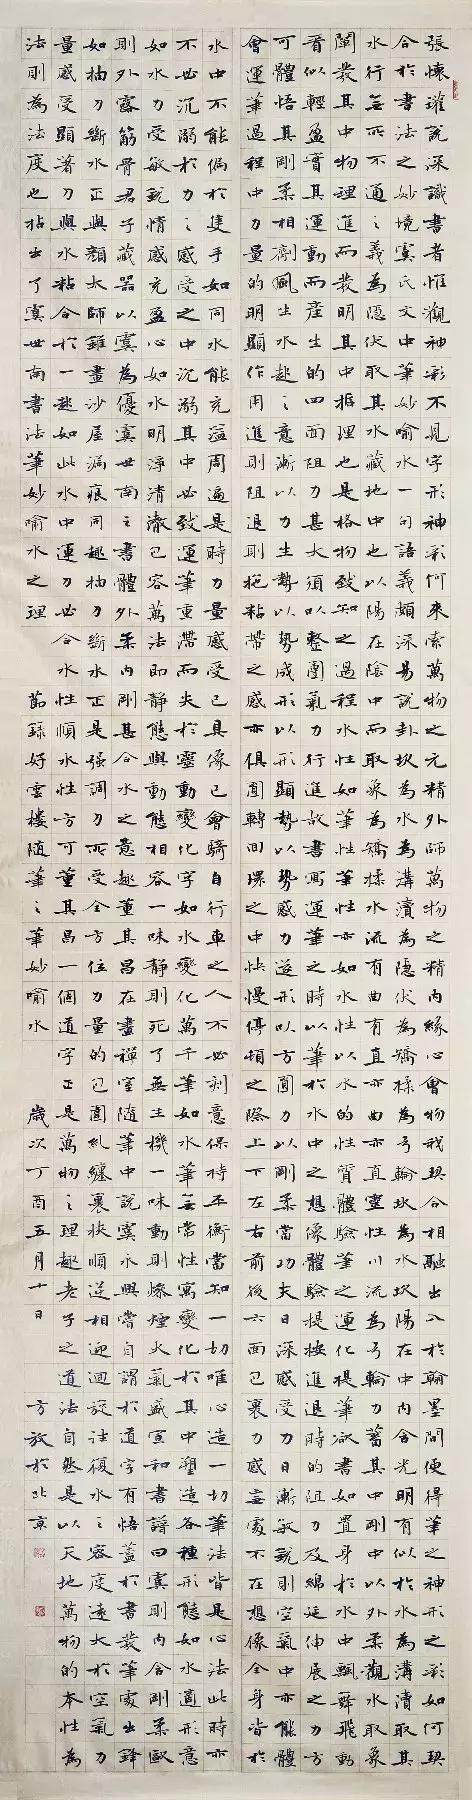 張懷瓘說深識書者惟觀神彩不見字形神彩何來索萬物之元精外師萬物之精內緣心會物我契合相融出入於翰墨間便得筆之神形之彩如何契
合於書法之妙境虞氏文中筆妙喻水一句語義頗深易說卦坎為水為溝瀆為隱伏為矯楺為弓輪坎為水坎陽在中內含光明有似於水為溝瀆取其
水行無所不通之義為隱伏取其水藏地中也以陽在陰中而取象為矯揉水流有曲有直亦曲亦直靈性川流為弓輪力蓄其中剛中以外柔觀水取象
闡發其中物理進而發明其中振理也是格物致知之過程水性如筆性筆性亦如水性以水的性質體驗筆之運化提筆欲書如置身於水中飄舞飛動
看似輕盈實其運動而產生的四面阻力甚大須以整團氣力行進故書寫運筆之時以筆於水中之想像體驗提按進退時的阻力及綿延伸展之力方
可體悟其剛柔相劑風生水趣之意漸以力生勢以勢成形以形顯勢以勢感力遂形以方圓力以剛柔當功夫日深感受力日漸敏銳則空氣中亦能體
會運筆過程中力量的明顯作用進則阻退則拖粘帶之感亦俱圓轉回環之中快慢停頓之際上下左右前後六面已裹力感無處不在想像全身皆於
水中不能偏於隻手如同水能充溢周遍是時力量感受已具像已會騎自行車之人不必刻意保持平衡當知一切唯心造一切筆法皆是心法此時亦
不必沉溺於力之感受之中沉溺其中必致運筆重滯而失於靈動變化字如水變化萬千筆如水筆無常性寓變化於其中塑造各種形態如水適形意
如水力受敏銳情感充盈心如水明淨清澈已容萬法即靜態與動態相容一味靜則死了無生機一味動則燥煙火氣盛宣和書譜曰虞則內含剛柔歐
則外露筋骨君子藏器以虞為優虞世南之書體外柔內剛甚合水之意趣董其昌在畫禪室隨筆中說虞永興嘗自謂於道字有悟蓋於書發筆處出鋒
如抽刀斷水正與顏太師錐畫沙屋漏痕同趣抽刀斷水正是強調力所受全方位力量的包圍糾纏裹挾順逆相迎迴旋往復水之容度遠大於空氣力
量感受顯著刀與水粘合於一趣如此水中運力必合水性順水性方可董其昌一個道字正是萬物之理趣老子之道法自然是以天地萬物的本性為
法則為法度也拈出了虞世南書法筆妙喻水之理 節錄好雲樓隨筆之筆妙喻水 歲次丁酉五月十日 方放於北京